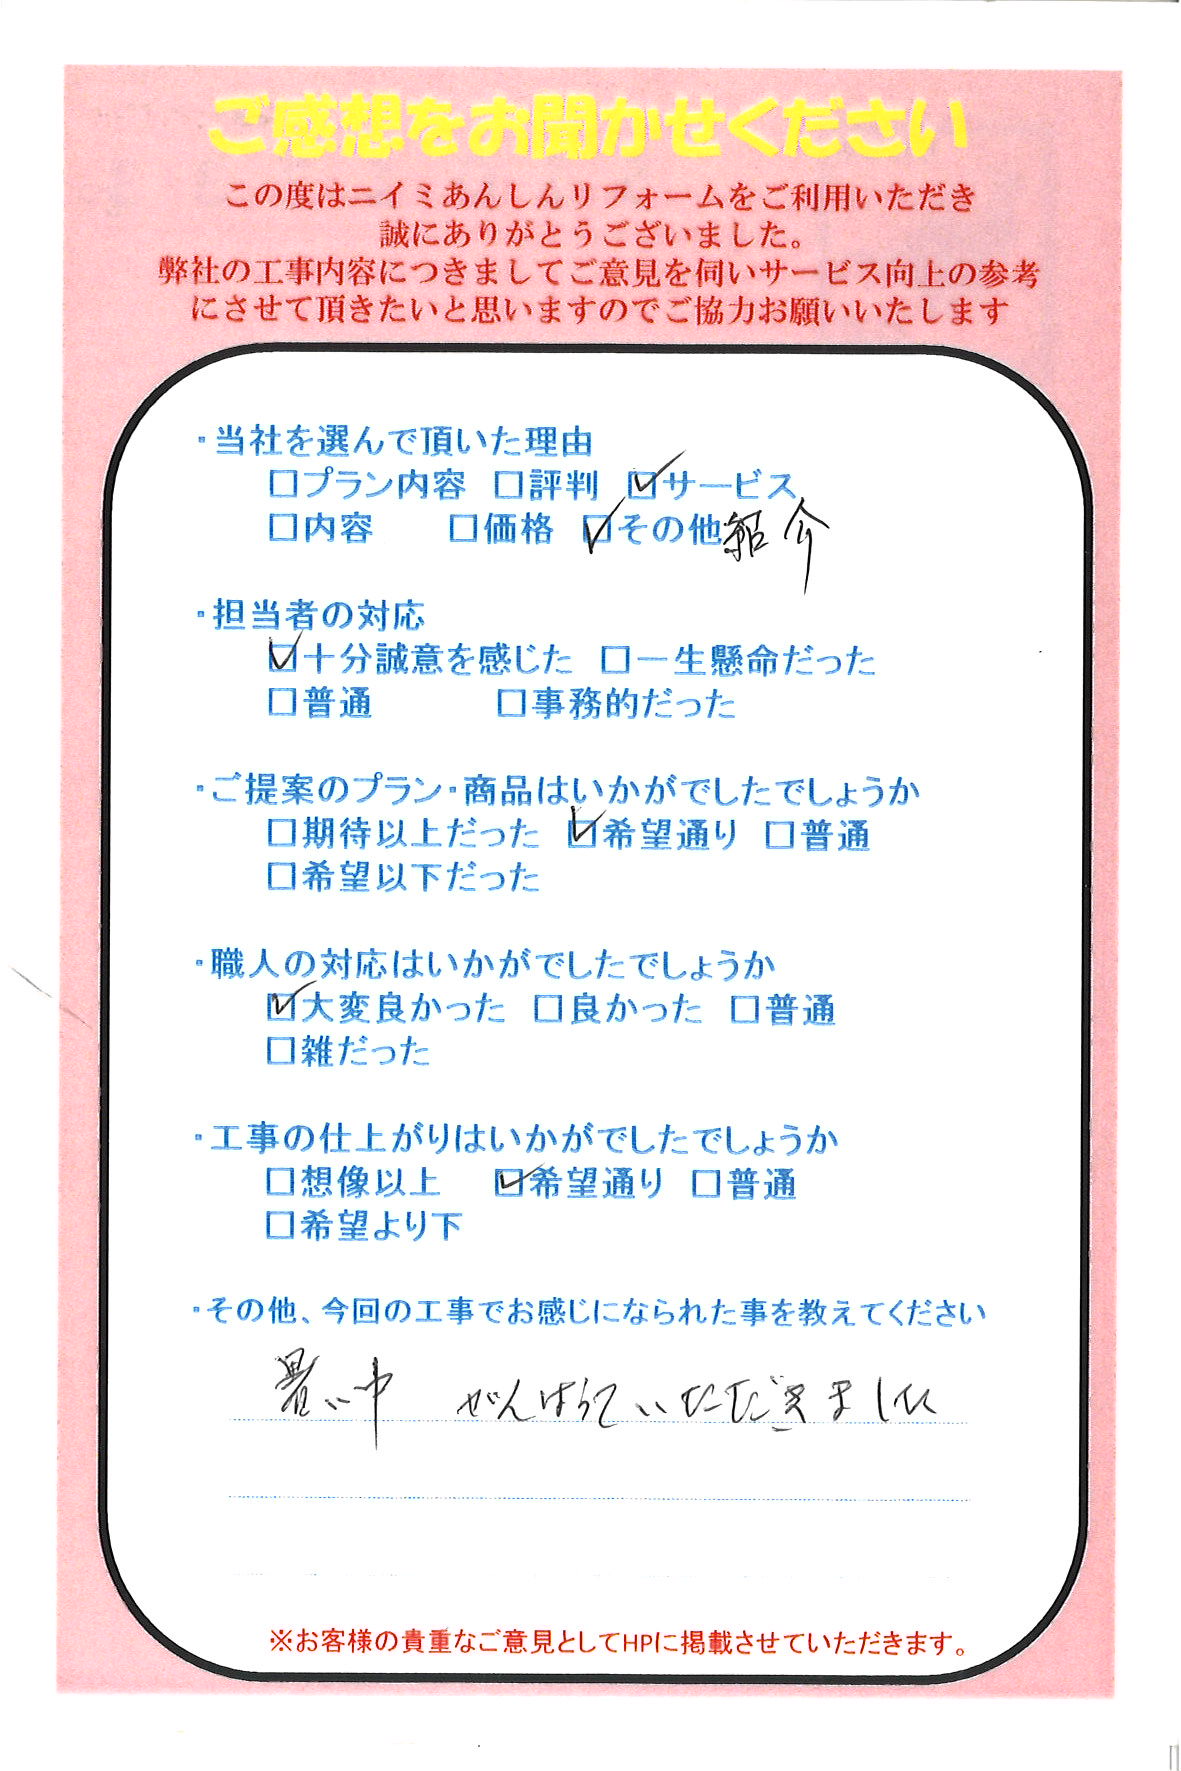 ご感想をお聞かせください
この度はニイミあんしんリフォームをご利用いただき
誠にありがとうございました。
弊社の工事内容につきましてご意見を伺いサービス向上の参考
にさせて頂きたいと思いますのでご協力お願いいたします
・当社を選んで頂いた理由
□プラン内容 □評判 ☑サービス
□内容 □価格 ☑その他 紹介
・担当者の対応
☑十分誠意を感じた □一生懸命だった
□普通 □事務的だった
・ご提案のプラン・商品はいかがでしたでしょうか
□期待以上だった ☑希望通り □普通
□希望以下だった
・職人の対応はいかがでしたでしょうか
☑大変良かった □良かった □普通
□雑だった
・工事の仕上がりはいかがでしたでしょうか
□想像以上 ☑希望通り □普通
□希望より下
・その他、今回の工事でお感じになられた事を教えてください
暑い中 がんばっていただきました
※お客様の貴重なご意見としてHPに掲載させていただきます。